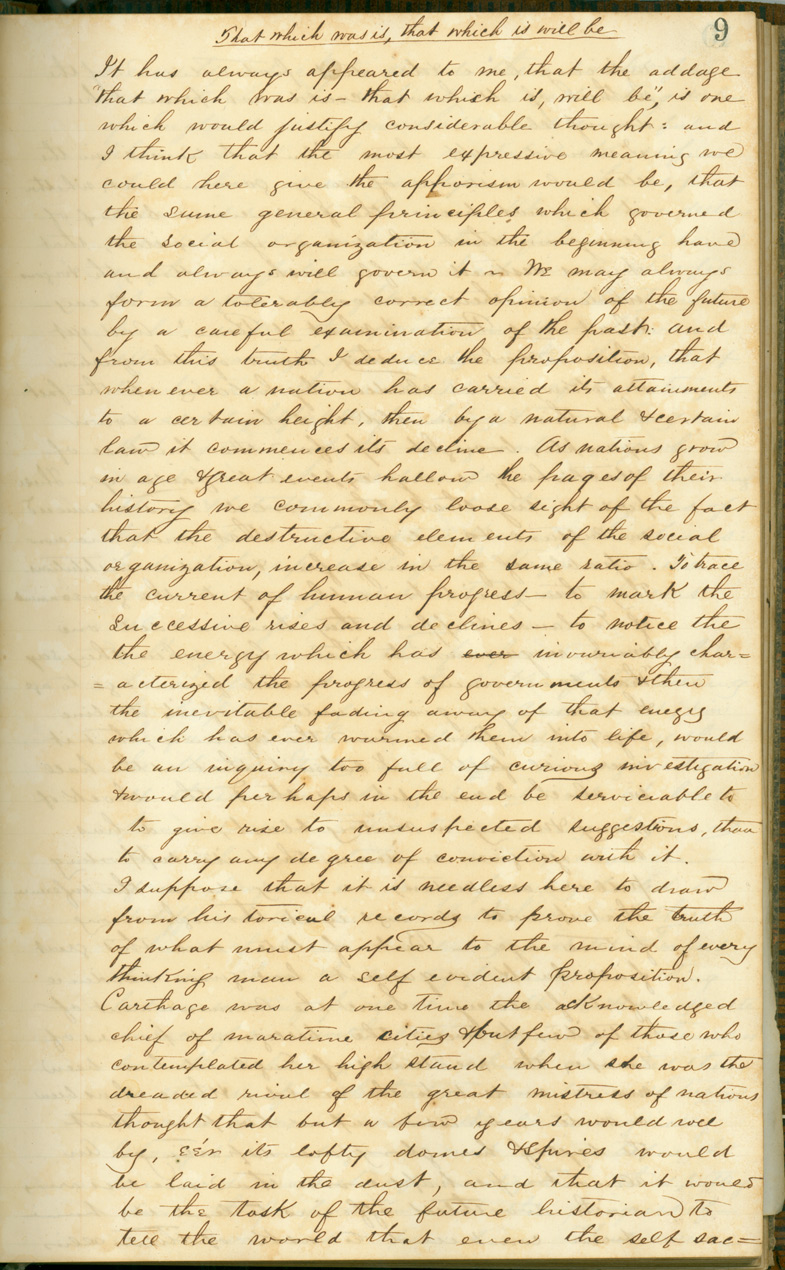 That which was is, that which is will be
9
It has always appeared to me, that the addage
"that which was is – that which is, will be", is one
which would justify considerable thought: and
I think that the most expressive meaning we
could here give the apphorism would be, that
the same general principles which governed
the social organization in the beginning have
and always will govern it ~ We may always
form a tolerably correct opinion of the future
by a careful examination of the past: and
from this truth I deduce the proposition, that
when ever a nation has carried its attainments
to a certain height, then by a natural & certain
law it commences its decline. As nations grow
in age & great events hallow the pages of their
history we commonly loose sight of the fact
that the destructive elements of the social
organization, increase in the same ratio. To trace
the current of human progress – to mark the
successive rises and declines – to notice the
the energy which has ever invariably char=
=acterized the progress of governments & then
the inevitable fading away of that energy
which has ever warmed them into life, would
be an inquiry too full of curious investigation
& would perhaps in the end be serviciable to
to give rise to unsuspected suggestions, than
to carry any degree of conviction with it.
I suppose that it is needless here to draw
from historical records to prove the truth
of what must appear to the mind of every
thinking man a self evident proposition.
Carthage was at one time the acknowledged
chief of maratime cities & but few of those who
contemplated her high stand when she was the
dreaded rival of the great mistress of nations
thought that but a few years would roll
by, e'er its lofty domes & spires would
be laid in the dust, and that it would
be the task of the future historian to
tell the world that even the self sac=